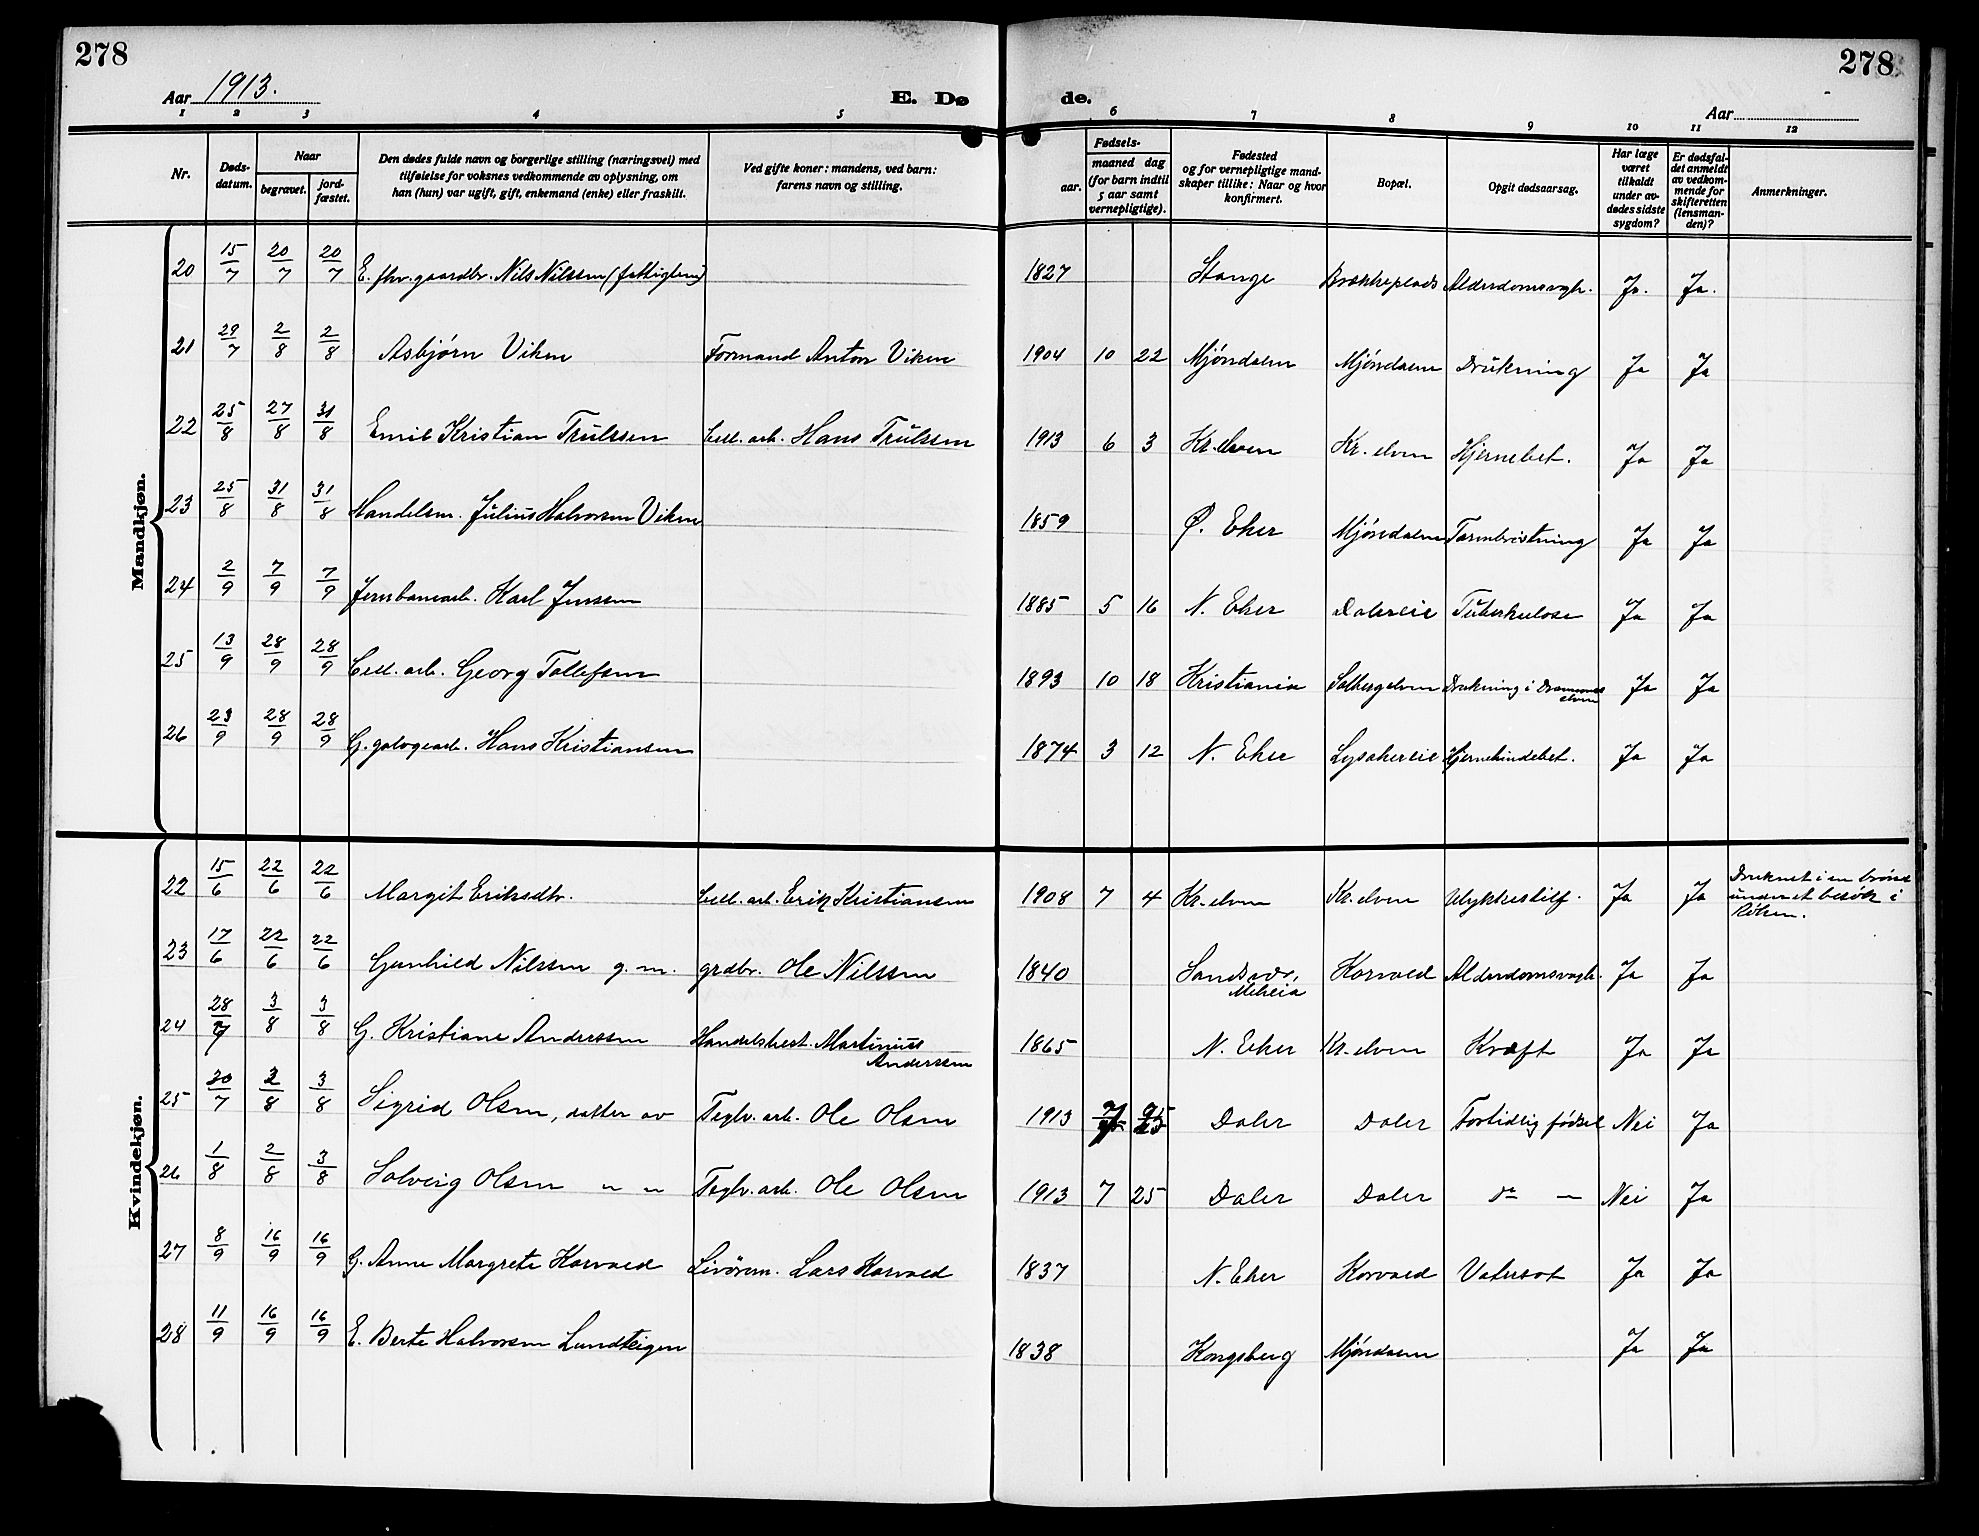 278
278
Aar 1913.
E. Dø
de.
Aar
1 2 3 4 5 6 7 8 9 10 11 12
Nr.
Døds-
datum.
Naar
begravet.
jord-
fæstet.
Den dødes fulde navn og borgerlige stilling (næringsvei) med
tilføielse for voksnes vedkommende av oplysning, om
han (hun) var ugift, gift, enkemand (enke) eller fraskilt.
Ved gifte koner: mandens, ved barn:
farens navn og stilling.
Fødsels-
aar.
maaned dag
(for barn indtil
5 aar samt
vernepligtige).
Fødested
og for vernepligtige mand-
skaper tillike: Naar og hvor
konfirmert.
Bopæl.
Opgit dødsaarsag.
Har læge
været
tilkaldt
under av-
dødes sidste
sygdom?
Er dødsfal-
det anmeldt
av vedkom-
mende for
skifteretten
(lensman-
den)?
Anmerkninger.
Mandkjøn.
20 15/7 20/7 20/7 E. fhv. gaardbr. Nils Nilssen (fattiglem) 1827 Stange Brækkeplads Alderdomssvagh. Ja. Ja.
21 29/7 2/8 2/8 Asbjørn Viken Formand Anton Viken 1904 10 22 Mjøndalen Mjøndalen Drukning Ja Ja
22 25/8 27/8 31/8 Emil Kristian Trulssen Cell. arb. Hans Trulssen 1913 6 3 Kr. elven Kr. elven Hjernebet. Ja Ja
23 25/8 31/8 31/8 Handelsm. Julius Halvorsen Viken 1859 Ø. Eker Mjøndalen Tarmbristning Ja Ja
24 2/9 7/9 7/9 Jernbanearb. Karl Jenssen 1885 5 16 N. Eker Dalereie Tuberkulose Ja Ja
25 13/9 28/9 28/9 Cell. arb. Georg Tollefsen 1893 10 18 Kristiania Solbergelven Drukning i Drammens
elven Ja Ja
26 23/9 28/9 28/9 G. galogearb. Hans Kristiansen 1874 3 12 N. Eker Lysakereie Hjernehindebet. Ja Ja
Kvindekjøn.
22 15/6 22/6 22/6 Margit Eriksdtr. Cell. arb. Erik Kristiansen 1908 7 4 Kr. elven Kr. elven Ulykkestilf. Ja Ja Druknet i en brønd
under et besøk i
Røken.
23 17/6 22/6 22/6 Gunhild Nilssen g. m. grdbr. Ole Nilssen 1840 Sandsvær,
Meheia Horvold Alderdomssvagh. Ja Ja
24 28/7 3/8 3/8 G. Kristiane Anderssen Handelsbest. Martinius
Anderssen 1865 N. Eker Kr. elven Kræft Ja Ja
25 30/7 2/8 3/8 Sigrid Olsen, datter av Teglv. arb. Ole Olsen 1913 7 25 Daler Daler Fortidlig fødsel Nei Ja
26 1/8 2/8 3/8 Solveig Olsen " " Teglv. arb. Ole Olsen 1913 7 25 Daler Daler do — Nei Ja
27 8/9 16/9 16/9 G. Anne Margrete Horvold Livørem. Lars Horvold 1837 N. Eker Horvold Vatersot Ja Ja
28 11/9 16/9 16/9 E. Berte Halvorsen Lundteigen 1838 Kongsberg Mjøndalen Ja Ja